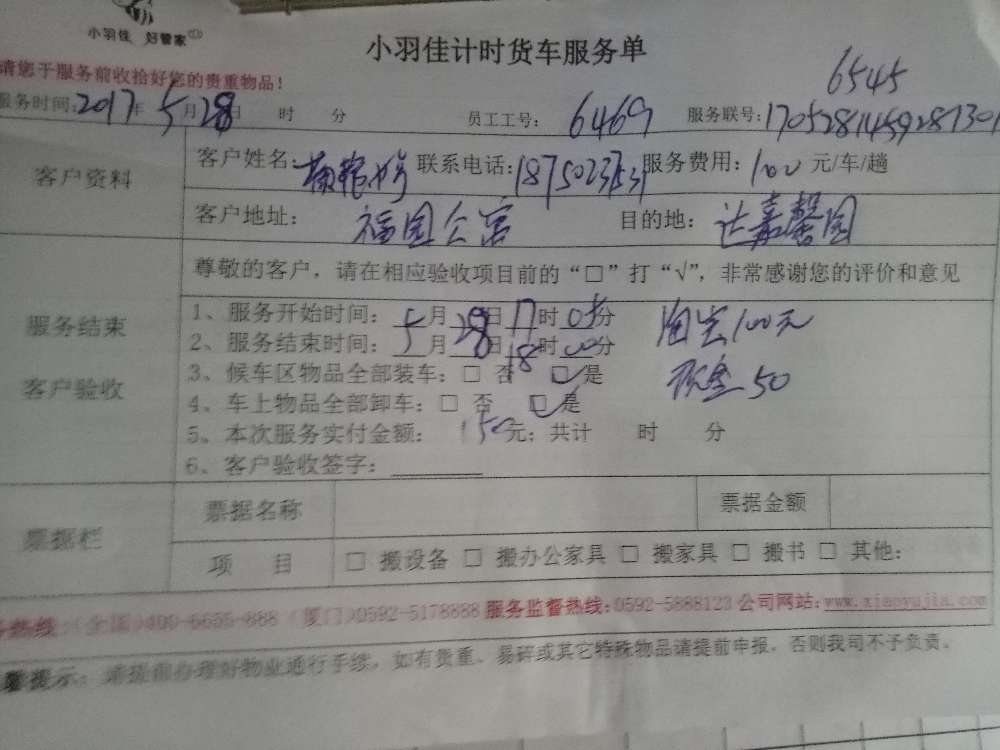 小羽佳 好管家
小羽佳计时货车服务单
请您于服务前收拾好您的贵重物品!
6545
服务时间:2017年5月28日 时 分 员工工号: 6469 服务联号:1705281459287301
客户资料
客户姓名: 联系电话:1875023531 服务费用: 100元/车/趟
客户地址: 福园公寓 目的地: 达嘉馨园
服务结束
客户验收
尊敬的客户,请在相应验收项目前的“□”打“√”,非常感谢您的评价和意见
1、服务开始时间: 5月28日17时05分 淘宝100元
2、服务结束时间: 5月28日18时00分
3、候车区物品全部装车:□ 否 □ 是 现金50
4、车上物品全部卸车:□ 否 □ 是
5、本次服务实付金额: 150元;共计 时 分
6、客户验收签字:
票据栏
票据名称 票据金额
项 目 □ 搬设备 □ 搬办公家具 □ 搬家具 □ 搬书 □ 其他:
热线:(全国)400-6655-888 (厦门)0592-5178888 服务监督热线:0592-5888123 公司网站:www.xiaoyujia.com
提示:请提前办理好物业通行手续,如有贵重、易碎或其它特殊物品请提前申报,否则我司不予负责。